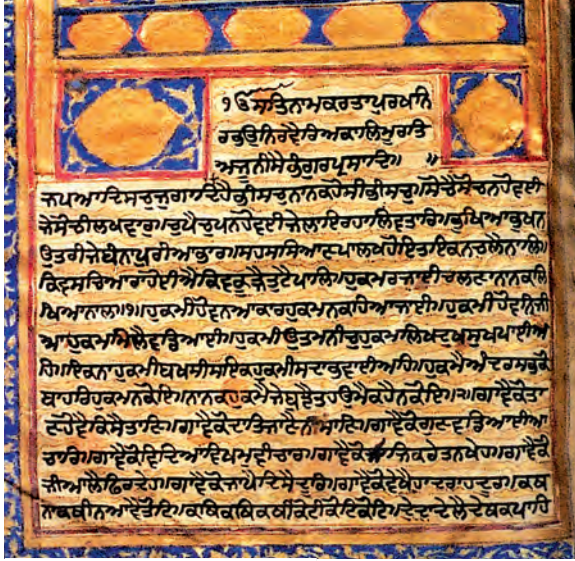 ੴਸਤਿਨਾਮਕਰਤਾਪੁਰਖਨਿ
ਰਭਉਨਿਰਵੈਰਿਅਕਾਲਿਮੂਰਤਿ
ਅਜੂਨੀਸੈਭੰਗੁਰਪ੍ਰਸਾਦਿ॥ ॥
ਜਪਆਦਿਸਚੁਜੁਗਾਦਿਹੈਭੀਸਚੁਨਾਨਕਹੋਸੀਭੀਸਚੁ॥ਸੋਚੈਸੋਚਨਹੋਵਈ
ਜੇਸੋਚੀਲਖਵਾਰ॥ਚੁਪੈਚੁਪਨਹੋਵਈਜੇਲਾਇਰਹਾਲਿਵਤਾਰ॥ਭੁਖਿਆਭੁਖਨ
ਉਤਰੀਜੇਬੰਨਪੁਰੀਆਭਾਰ॥ਸਹਸਸਿਆਣਪਾਲਖਹੋਹਿਤਇਕਨਚਲੈਨਾਲਿ॥
ਕਿਵਸਚਿਆਰਾਹੋਈਐਕਿਵਕੂੜੈਤੁਟੈਪਾਲਿ॥ਹੁਕਮਰਜਾਈਚਲਣਾਨਾਨਕਲਿ
ਖਿਆਨਾਲ॥੧॥ਹੁਕਮੀਹੋਵਨਆਕਾਰਹੁਕਮਨਕਹਿਆਜਾਈ॥ਹੁਕਮੀਹੋਵਨਿਜੀ
ਆਹੁਕਮਮਿਲੈਵਡਿਆਈ॥ਹੁਕਮੀਉਤਮਨੀਚੁਹੁਕਮਲਿਖਦੁਖਸੁਖਪਾਈਅ
ਹਿ॥ਇਕਨਾਹੁਕਮੀਬਖਸੀਸਇਕਹੁਕਮੀਸਦਾਭਵਾਈਅਹਿ॥ਹੁਕਮੈਅੰਦਰਸਭਕੋ
ਬਾਹਰਿਹੁਕਮਨਕੋਇ॥ਨਾਨਕਹੁਕਮੈਜੇਬੁਝੈਤਹਉਮੈਕਹੈਨਕੋਇ॥੨॥ਗਾਵੈਕੋਤਾ
ਣਹੋਵੈਕਿਸੈਤਾਣਿ॥ਗਾਵੈਕੋਦਾਤਿਜਾਣੈਨੀਸਾਣਿ॥ਗਾਵੈਕੋਗੁਣਵਡਿਆਈਆ
ਚਾਰ॥ਗਾਵੈਕੋਵਿਦਿਆਵਿਖਮੁਵੀਚਾਰ॥ਗਾਵੈਕੋਸਾਜਿਕਰੇਤਨਖੇਹ॥ਗਾਵੈਕੋ
ਜੀਅਲੈਫਿਰਦੇਹ॥ਗਾਵੈਕੋਜਾਪੈਦਿਸੈਦੂਰਿ॥ਗਾਵੈਕੋਵੇਖੈਹਾਦਰਾਹਦੂਰ॥ਕਥ
ਨਾਕਥੀਨਆਵੈਤੋਟਿ॥ਕਥਿਕਥਿਕਥੀਕੋਟੀਕੋਟਿਕੋਟਿ॥ਦੇਦਾਦੇਲੈਦੇਥਕਪਾਹਿ